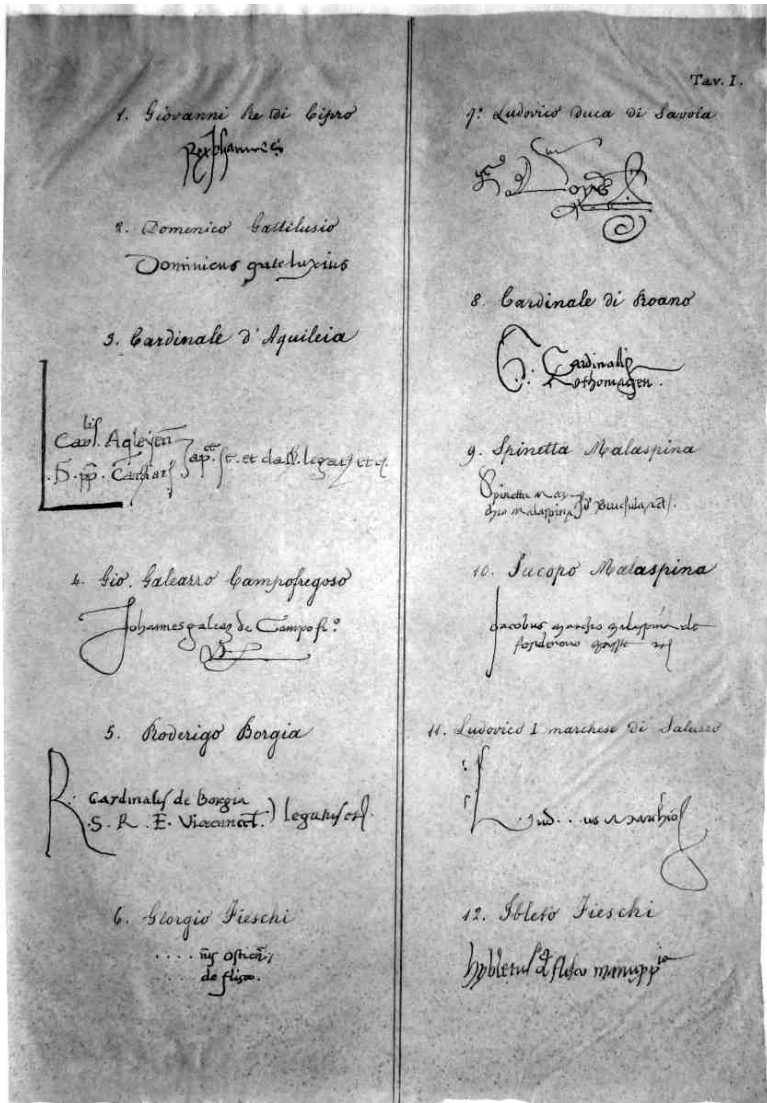 Tav. I.
1. Giovanni Re di Cipro
Rex Johannes
2. Domenico Gattilusio
Dominicus gateluxius
3. Cardinale d'Aquileia
L
Aqleyen
4. Gio. Galeazzo Campofregoso
Johannes galeaz de Campofr.o
5. Roderigo Borgia
R. Cardinalis de Borgia
S. R. E. Vicecancel.) legatus
6. Giorgio Fieschi
.... nus ostien
de flisco.
7. Ludovico Duca di Savoia
Loys
8. Cardinale di Roano
G. Cardinalis
Rothomagen.
9. Spinetta Malaspina
Spinetta mar
chio malaspina
10. Jacopo Malaspina
Jacobus marchio malaspina de
11. Ludovico I marchese di Saluzzo
Lud...us Marchio
12. Ibleto Fieschi
hybletus de flisco manu pp ia